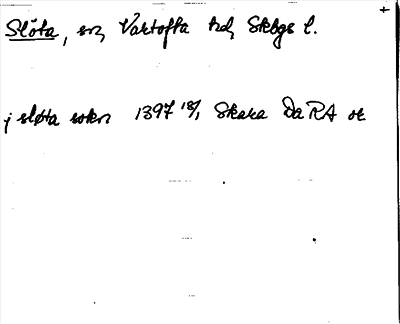 Slöta, sn, Vartofta hd, Skbgs l.
j sløta sokn 1397 18/1 Skara Da RA or